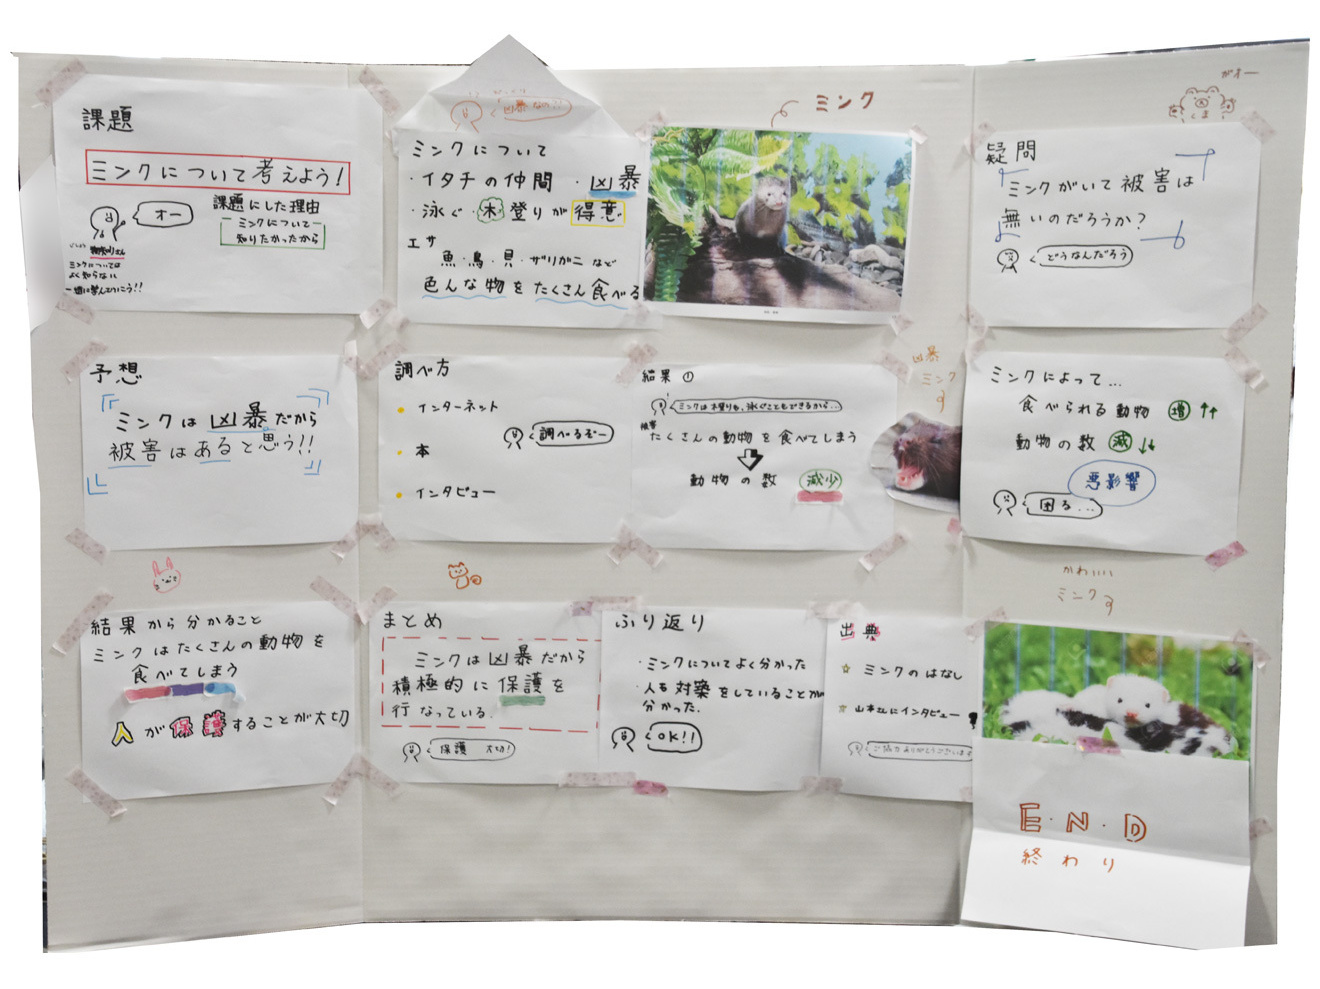 課題
ミンクについて考えよう!
オー
課題にした理由
ミンクについて
知りたかったから
ミンクについては
よく知らない
一緒に学んでいこう!!
凶暴なの??
ミンクについて
・イタチの仲間 ・凶暴
・泳ぐ・木登りが得意
エサ
魚・鳥・貝・ザリガニなど
色んな物をたくさん食べる
ミンク
がオー
くま
疑問
「ミンクがいて被害は
無いのだろうか?」
どうなんだろう
予想
ミンクは凶暴だから
被害はあると思う!!
調べ方
・インターネット
・本
・インタビュー
調べるぞー
結果①
ミンクは木登りも、泳ぐこともできるから…
たくさんの動物を食べてしまう
動物の数 減少
凶暴
ミンク
ミンクによって…
食べられる動物 増↑↑
動物の数 減↓↓
悪影響
困る…
結果から分かること
ミンクはたくさんの動物を
食べてしまう
人が保護することが大切
まとめ
ミンクは凶暴だから
積極的に保護を
行なっている。
保護 大切!
ふり返り
・ミンクについてよく分かった
・人も対築をしていることが
分かった.
OK!!
出典
☆ ミンクのはなし
☆ 山本さんにインタビュー
ご協力ありがとうございます
かわいい
ミンク
E・N・D
終わり